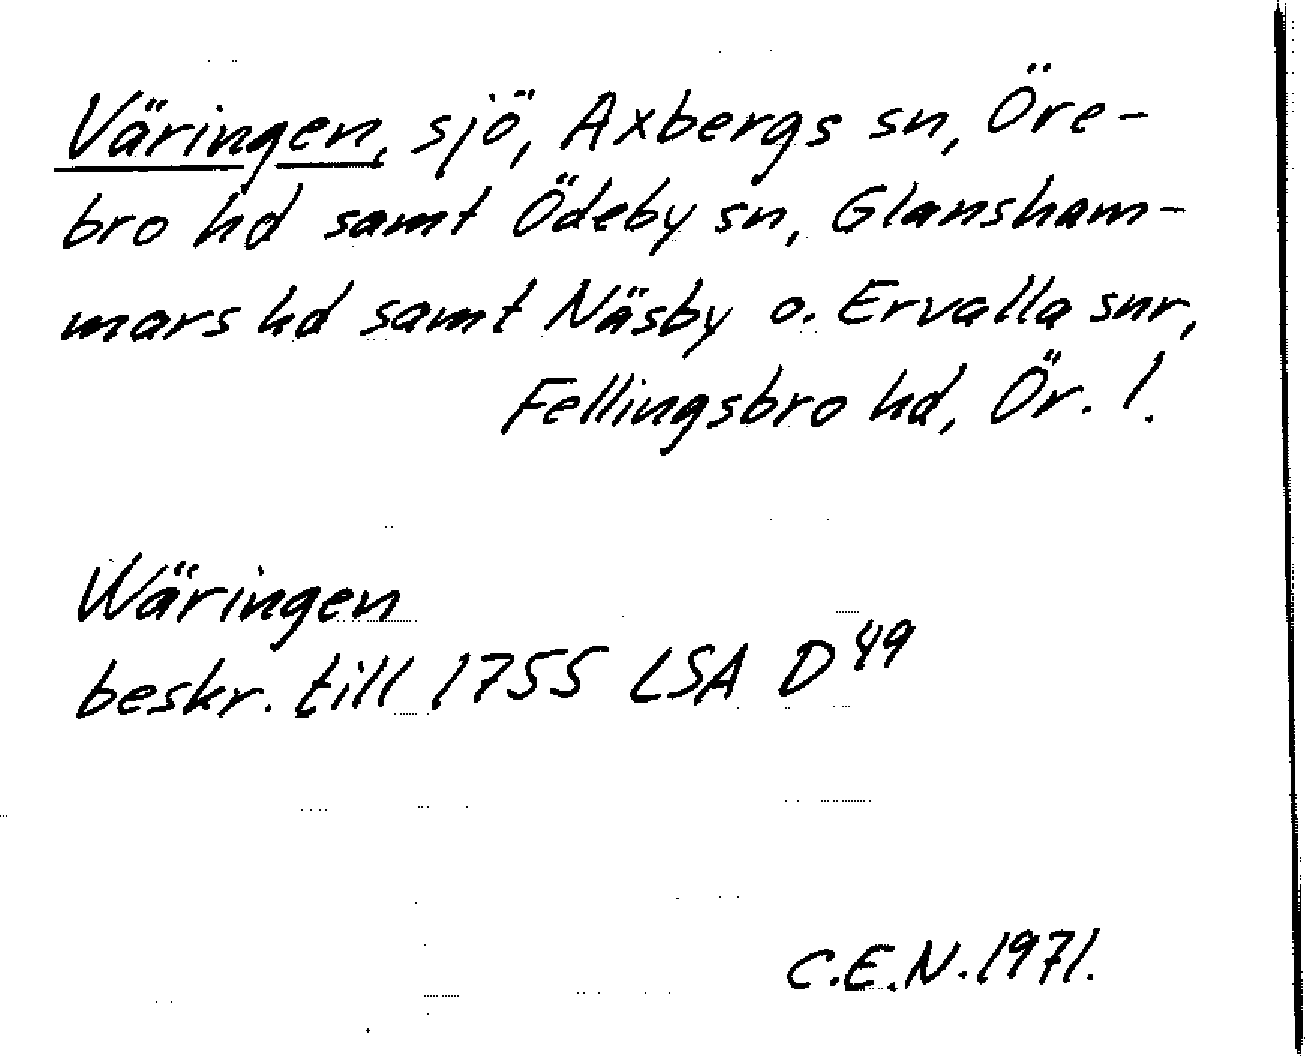 Väringen, sjö, Axbergs sn, Öre-
bro hd samt Ödeby sn, Glansham-
mars hd samt Näsby o. Ervalla snr,
Fellingsbro hd, Ör. l.
Wäringen
beskr. till 1755 LSA D 49
C.E.N. 1971.